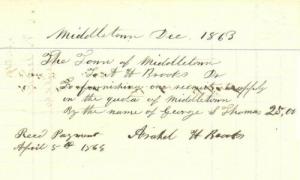 Middletown Dec. 1863
The Town of Middletown
To A H Brooks Dr
To furnishing one recruit to apply
in the quota of Middletown
By the name of George S Thomas 25,00
Recd Payment Asahel H Brooks
April 5th 1864